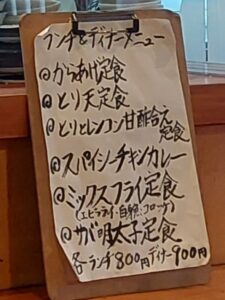 ランチ&ディナーメニュー
◎からあげ定食
◎とり天定食
◎とりとレンコン甘酢合え
定食
◎スパイシーチキンカレー
◎ミックスフライ定食
(エビフライ・白身・コロッケ)
◎サバ明太子定食
各ランチ800円ディナー900円